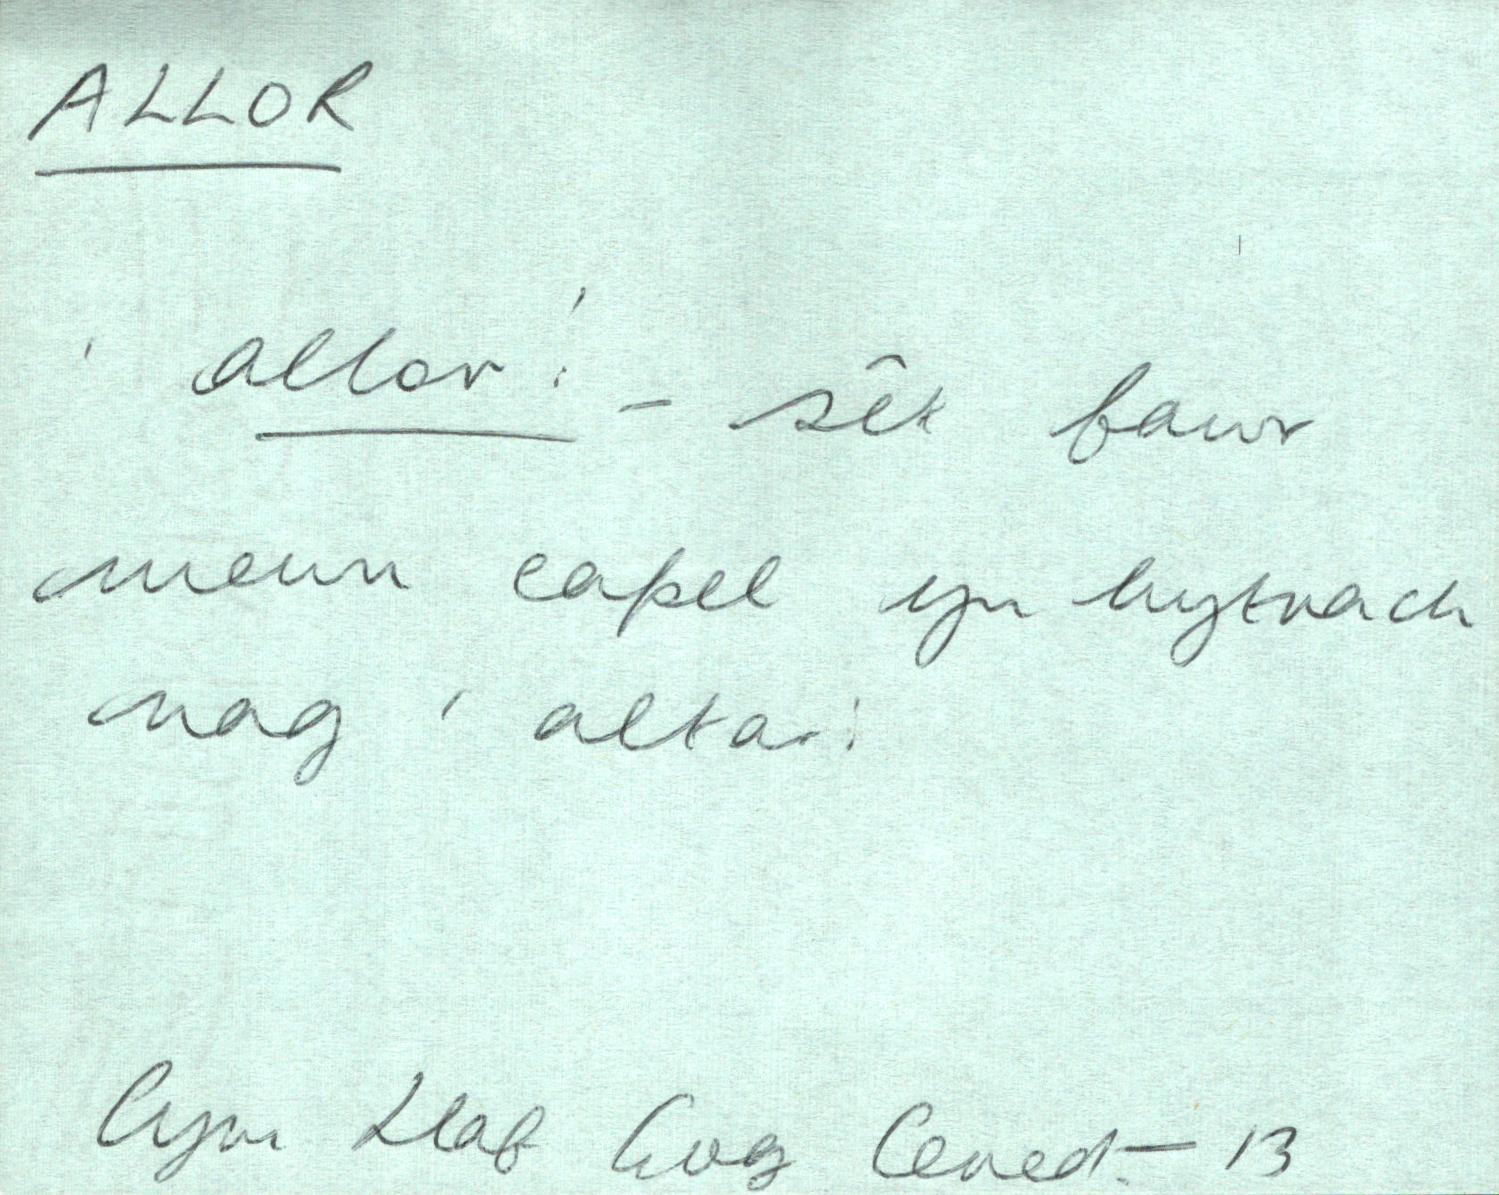 ALLOR
'allor' - sêt fawr
mewn capel yn hytrach
nag 'altar'
Cym Llaf Gog Cered - 13